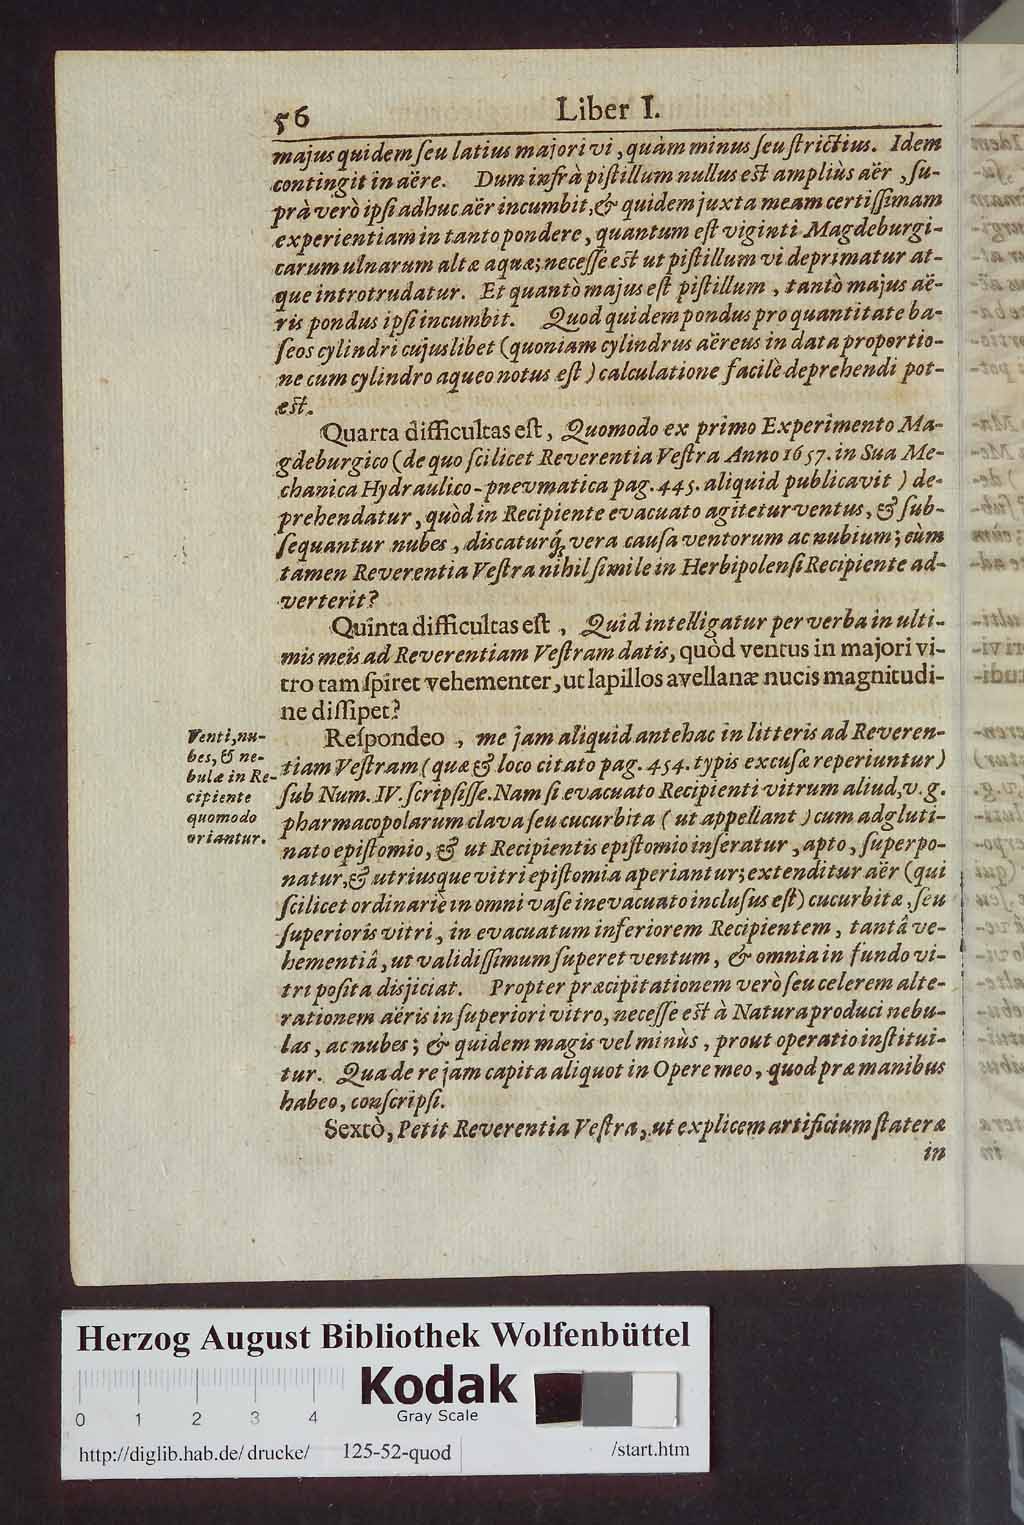 56 Liber I.
majus quidem ſeu latius majori vi, quàm minus ſeu ſtrictius. Idem
contingit in aëre. Dum infrà piſtillum nullus est ampliùs aër, ſu-
prà verò ipſi adhuc aër incumbit, & quidem juxta meam certiſſimam
experientiam in tanto pondere, quantum eſt viginti Magdeburgi-
carum ulnarum altæ aquæ; neceſſe est ut piſtillum vi deprimatur at-
que introtrudatur. Et quantò majus eſt piſtillum, tantò majus aë-
ris pondus ipſi incumbit. Quod quidem pondus pro quantitate ba-
ſeos cylindri cujuslibet (quoniam cylindrus aëreus in data proportio-
ne cum cylindro aqueo notus eſt) calculatione facilè deprehendi pot-
est.
Quarta difficultas eſt, Quomodo ex primo Experimento Ma-
gdeburgico (de quo ſcilicet Reverentia Veſtra Anno 1657. in Sua Me-
chanica Hydraulico-pnevmatica pag. 445. aliquid publicavit) de-
prehendatur, quòd in Recipiente evacuato agitetur ventus, & ſub-
ſequantur nubes, discaturq́; vera cauſa ventorum ac nubium; cùm
tamen Reverentia Veſtra nihil ſimile in Herbipolenſi Recipiente ad-
verterit?
Quinta difficultas eſt, Quid intelligatur per verba in ulti-
mis meis ad Reverentiam Veſtram datis, quòd ventus in majori vi-
tro tam ſpiret vehementer, ut lapillos avellanæ nucis magnitudi-
ne diſſipet?
Venti, nu-
bes, & ne-
bulæ in Re-
cipiente
quomodo
oriantur.
Reſpondeo, me jam aliquid antehac in litteris ad Reveren-
tiam Veſtram (quæ & loco citato pag. 454. typis excuſæ reperiuntur)
ſub Num. IV. ſcripſiſſe. Nam ſi evacuato Recipienti vitrum aliud, v. g.
pharmacopolarum clava ſeu cucurbita (ut appellant) cum adgluti-
nato epiſtomio, & ut Recipientis epiſtomio inſeratur, apto, ſuperpo-
natur, & utriusque vitri epiſtomia aperiantur; extenditur aër (qui
ſcilicet ordinariè in omni vaſe inevacuato incluſus eſt) cucurbitæ, ſeu
ſuperioris vitri, in evacuatum inferiorem Recipientem, tantâ ve-
hementiâ, ut validiſſimum ſuperet ventum, & omnia in fundo vi-
tri poſita disjiciat. Propter præcipitationem verò ſeu celerem alte-
rationem aëris in ſuperiori vitro, neceſſe est à Natura produci nebu-
las, ac nubes; & quidem magis vel minùs, prout operatio inſtitui-
tur. Qua de re jam capita aliquot in Opere meo, quod præ manibus
habeo, conſcripſi.
Sextò, Petit Reverentia Veſtra, ut explicem artificium ſtateræ
in
Herzog August Bibliothek Wolfenbüttel
Kodak
Gray Scale
0 1 2 3 4
http://diglib.hab.de/drucke/ 125-52-quod /start.htm